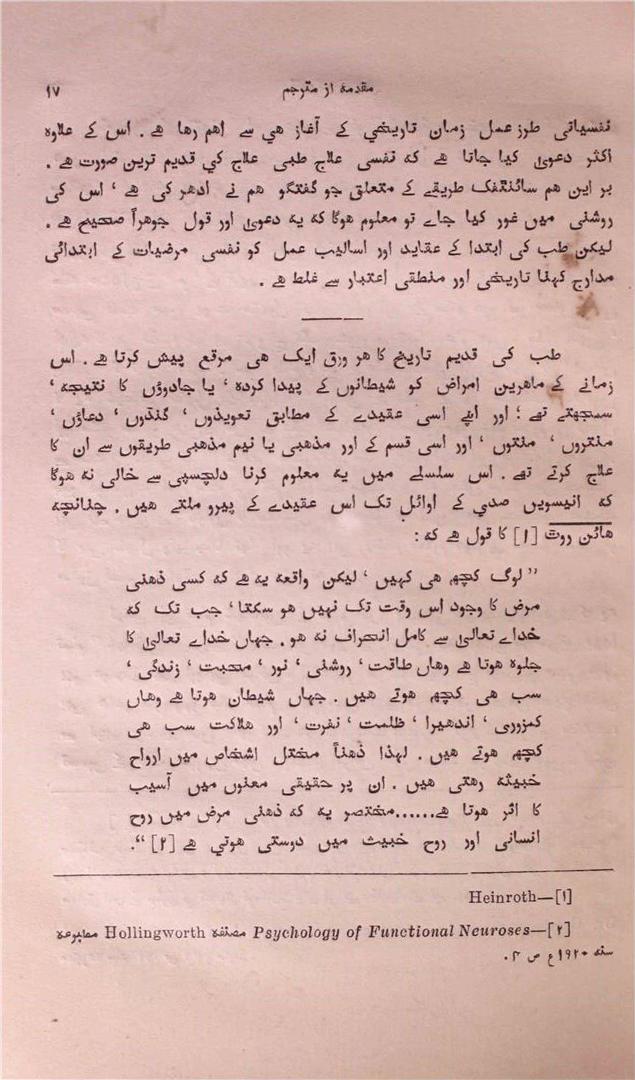 مقدمہ از مترجم ۱۷
نفسیاتی طرز عمل زمان تاریخی کے آغاز ھی سے اھم رھا ھے . اس کے علاوہ
اکثر دعویٰ کیا جاتا ھے کہ نفسی علاج طبی علاج کی قدیم ترین صورت ھے .
بر این ھم سائنٹفک طریقے کے متعلق جو گفتگو ھم نے ادھر کی ھے ، اس کی
روشنی میں غور کیا جاے تو معلوم ھوگا کہ یہ دعویٰ اور قول جوھراً صحیح ھے .
لیکن طب کی ابتدا کے عقاید اور اسالیب عمل کو نفسی مرضیات کے ابتدائی
مدارج کہنا تاریخی اور منطقی اعتبار سے غلط ھے .
طب کی قدیم تاریخ کا ھر ورق ایک ھی مرقع پیش کرتا ھے . اس
زمانے کے ماھرین امراض کو شیطانوں کے پیدا کردہ ، یا جادوؤں کا نتیجہ ،
سمجھتے تھے ؛ اور اپنے اسی عقیدے کے مطابق تعویذوں ، گنڈوں ، دعاؤں ،
منتروں ، منتوں ، اور اسی قسم کے اور مذھبی یا نیم مذھبی طریقوں سے ان کا
علاج کرتے تھے . اس سلسلے میں یہ معلوم کرنا دلچسپی سے خالی نہ ھوگا
کہ انیسویں صدی کے اوائل تک اس عقیدے کے پیرو ملتے ھیں . چنانچہ
ھائن روٹ [۱] کا قول ھے کہ :
” لوگ کچھ ھی کہیں ، لیکن واقعہ یہ ھے کہ کسی ذھنی
مرض کا وجود اس وقت تک نہیں ھو سکتا ، جب تک کہ
خداے تعالیٰ سے کامل انحراف نہ ھو . جہاں خداے تعالیٰ کا
جلوہ ھوتا ھے وھاں طاقت ، روشنی ، نور ، محبت ، زندگی ،
سب ھی کچھ ھوتے ھیں . جہاں شیطان ھوتا ھے وھاں
کمزوری ، اندھیرا ، ظلمت ، نفرت ، اور ھلاکت سب ھی
کچھ ھوتے ھیں . لہذا ذھناً مختل اشخاص میں ارواح
خبیثہ رھتی ھیں . ان پر حقیقی معنوں میں آسیب
کا اثر ھوتا ھے......مختصر یہ کہ ذھنی مرض میں روح
انسانی اور روح خبیث میں دوستی ھوتی ھے [۲] “.
Heinroth—[۱]
Psychology of Functional Neuroses—[۲] مصنفہ Hollingworth مطبوعہ
سنہ ۱۹۲۰ع ص ۴ .